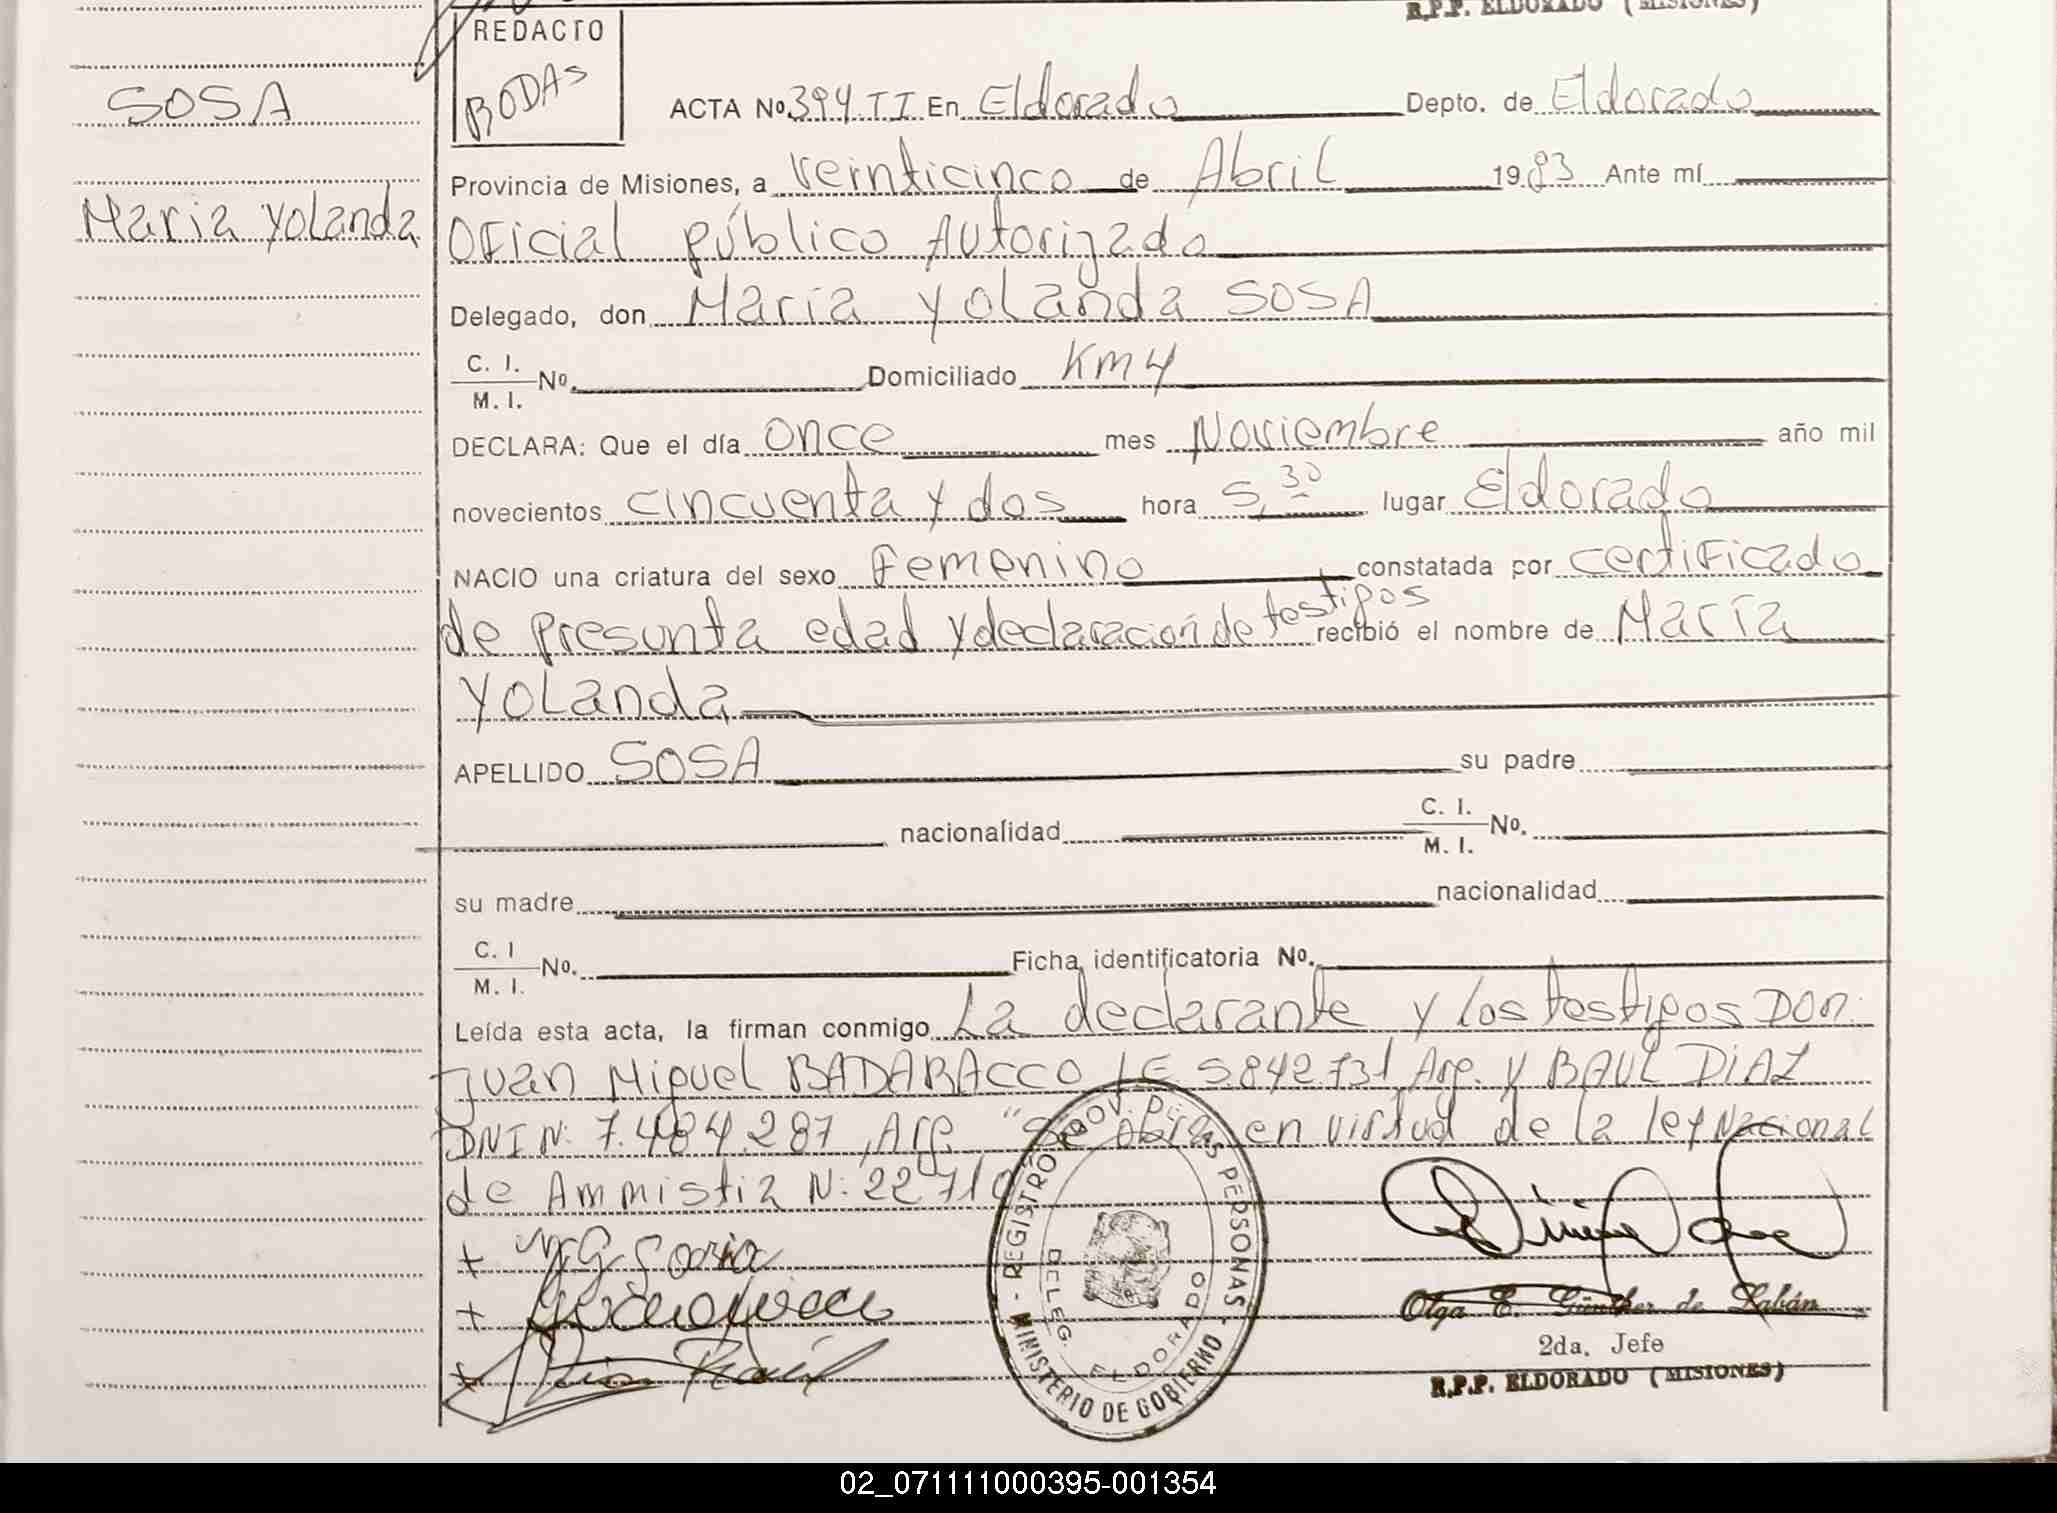 R.P.P. ELDORADO (MISIONES)
REDACTO
RODAS
SOSA
Maria Yolanda
ACTA Nº 394.TI En Eldorado Depto. de Eldorado
Provincia de Misiones, a veinticinco de Abril 1983 Ante mí
Oficial público Autorizado
Delegado, don María Yolanda SOSA
C. I.
M. I. Nº. Domiciliado Km 4
DECLARA: Que el día once mes Noviembre año mil
novecientos cincuenta y dos hora 5,30 lugar Eldorado
NACIO una criatura del sexo femenino constatada por certificado
de presunta edad y declaración de testigos recibió el nombre de María
Yolanda
APELLIDO SOSA su padre
nacionalidad C. I.
M. I. Nº.
su madre nacionalidad
C. I
M. I. Nº. Ficha identificatoria Nº.
Leída esta acta, la firman conmigo La declarante y los testigos Don.
Juan Miguel BADARACCO LE 5.842.731 Arg. y RAUL DIAZ
DNI N: 7.484.287, Arg. "Se obra en virtud de la ley Nacional
de Ammistia N: 22.710
REGISTRO PROV. DE LAS PERSONAS
MINISTERIO DE GOBIERNO
DELEG. ELDORADO
Olga E. Günther de Labán
2da. Jefe
R.P.P. ELDORADO (MISIONES)
02_071111000395-001354